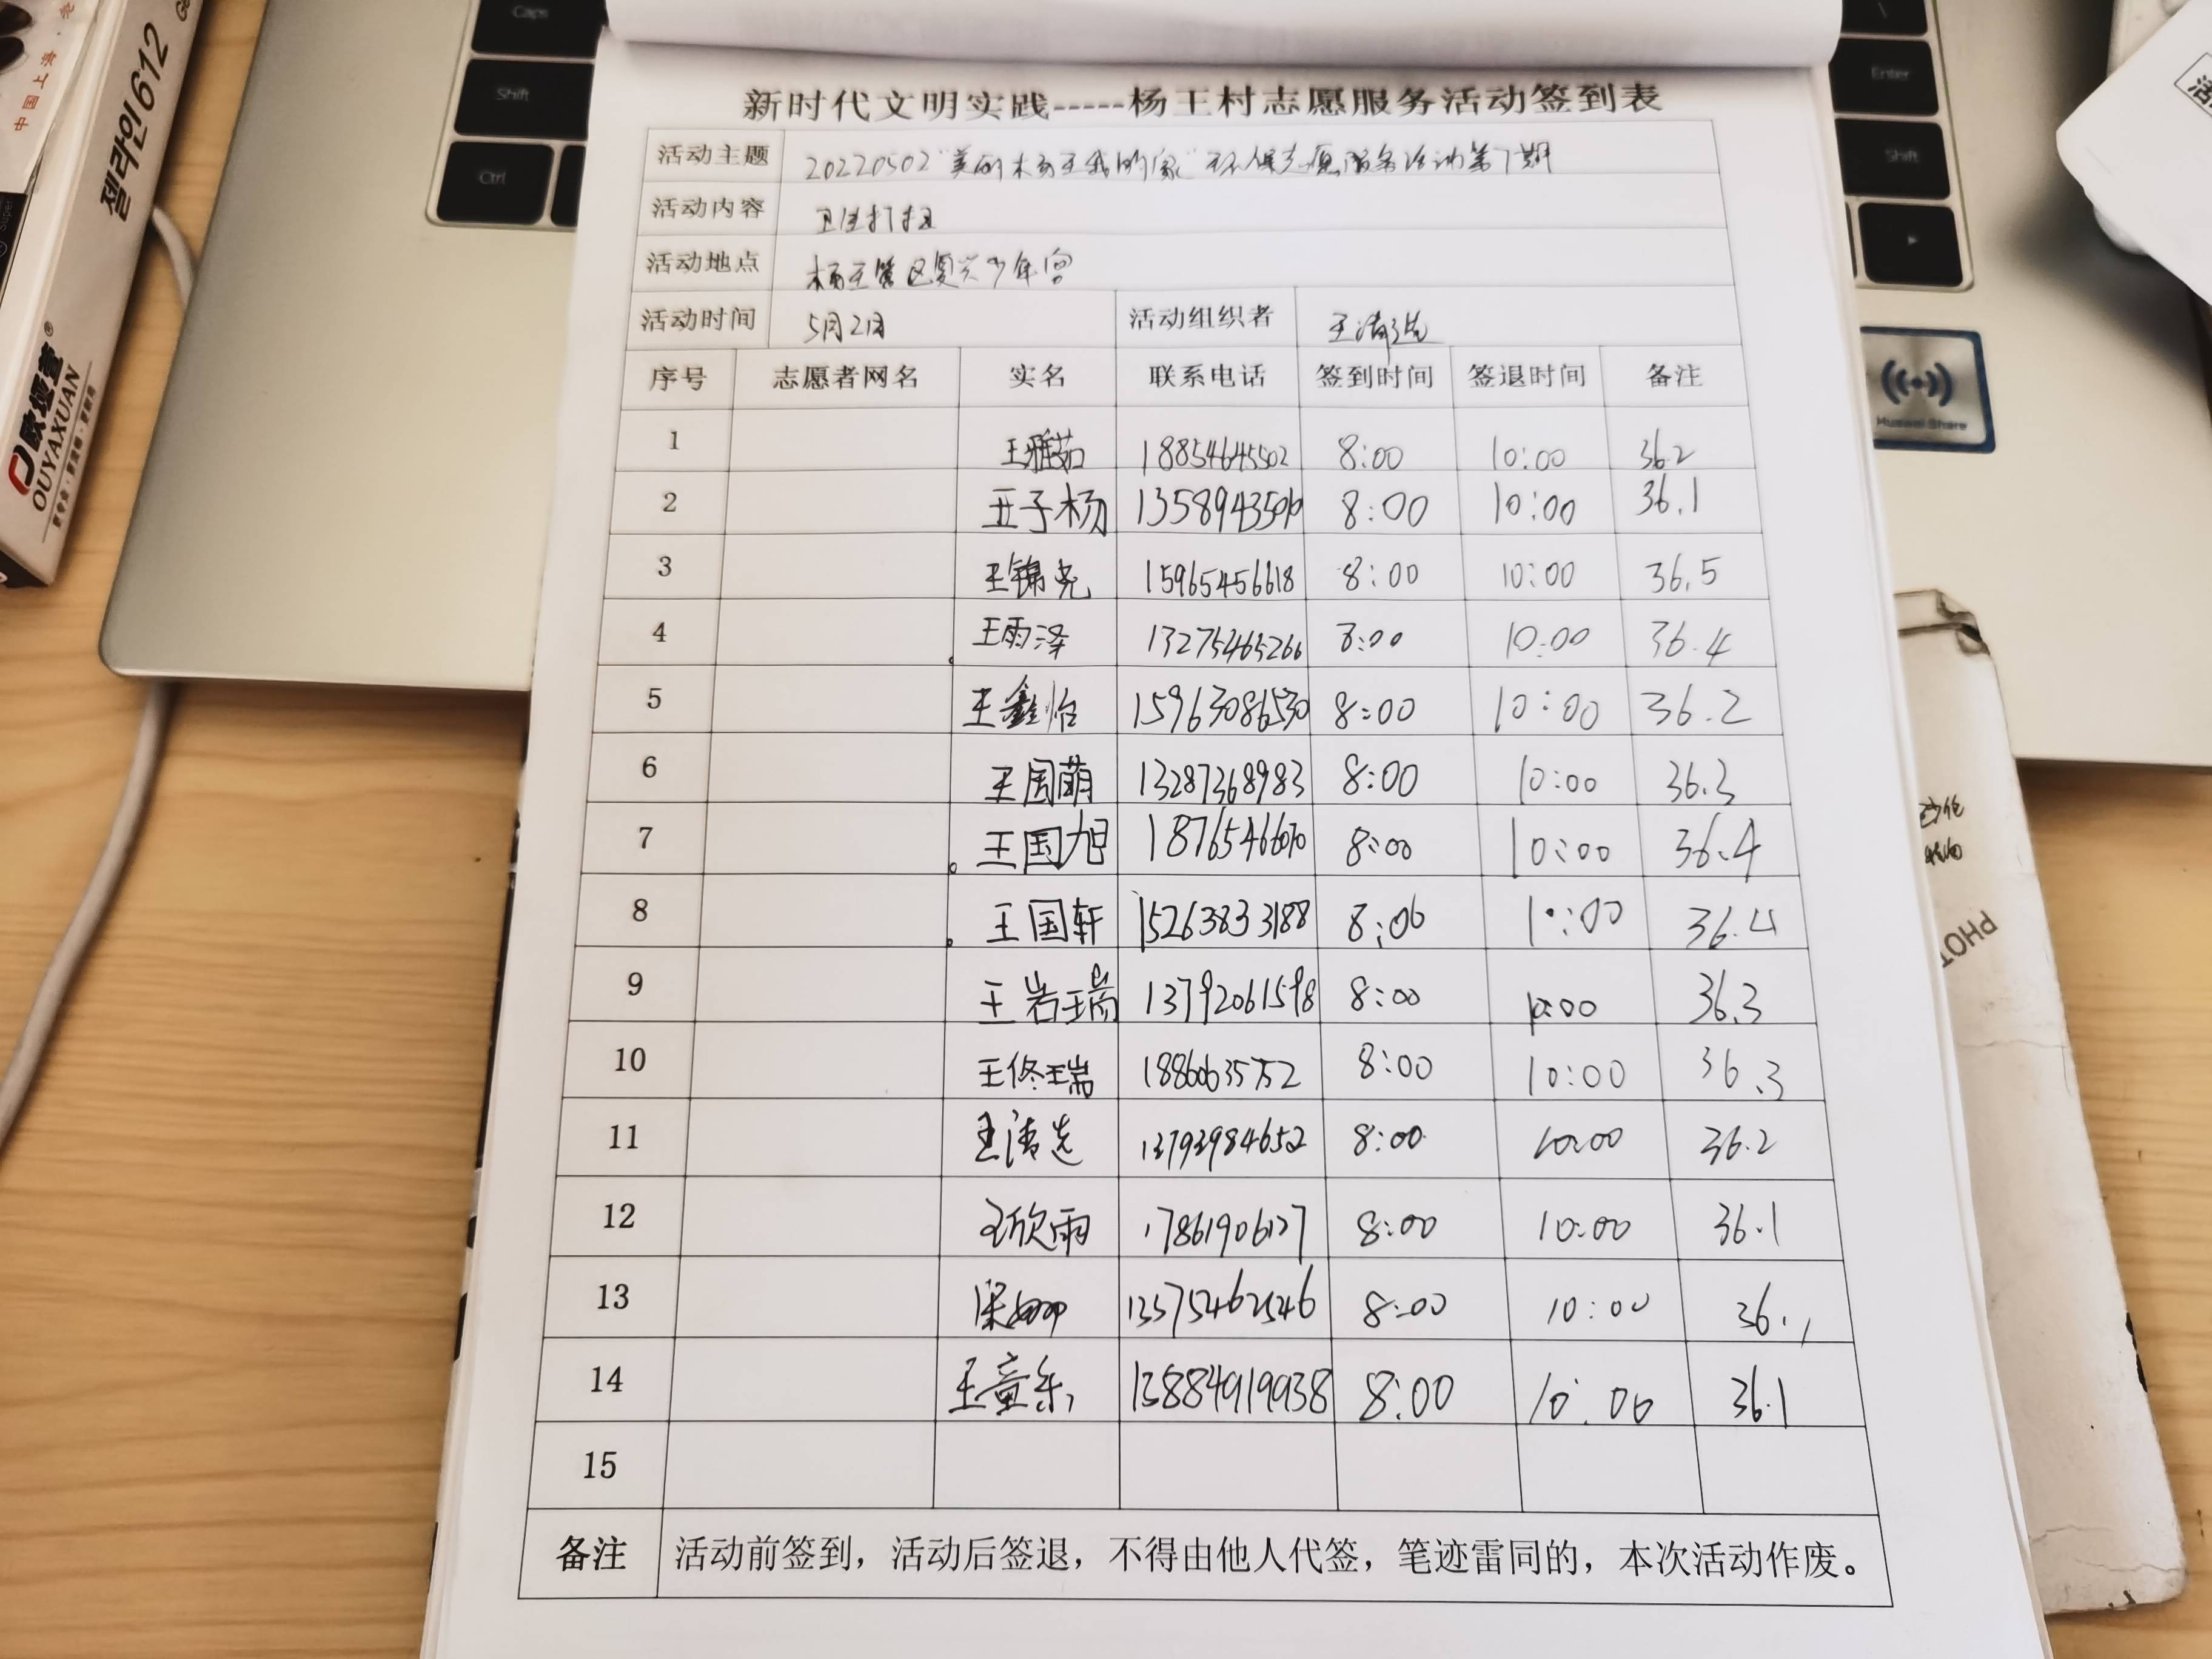 新时代文明实践-----杨王村志愿服务活动签到表
活动主题 20220502"美丽杨王我的家"环保志愿服务活动第7期
活动内容 卫生打扫
活动地点 杨王管区复兴少年宫
活动时间 5月2日 活动组织者
序号 志愿者网名 实名 联系电话 签到时间 签退时间 备注
1 王雅茹 18854645502 8:00 10:00 36.2
2 王子杨 8:00 10:00 36.1
3 王锦尧 15965456618 8:00 10:00 36.5
4 王雨泽 13275465266 8:00 10:00 36.4
5 王鑫怡 15963086530 8:00 10:00 36.2
6 王国萌 13287368983 8:00 10:00 36.3
7 王国旭 8:00 10:00 36.4
8 王国轩 15263833188 8:00 10:00 36.4
9 王岩瑞 13792061598 8:00 10:00 36.3
10 王佟瑞 8:00 10:00 36.3
11 13793984652 8:00 10:00 36.2
12 王欣雨 17861906127 8:00 10:00 36.1
13 8:00 10:00 36.1
14 王童乐 13884919938 8:00 10:00 36.1
15
备注 活动前签到，活动后签退，不得由他人代签，笔迹雷同的，本次活动作废。
Caps
Shift
Ctrl
Enter
Shift
Huawei Share
젤라인612
中国上海
OUYAXUAN
PHOT